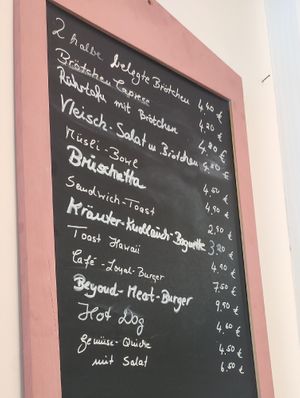 2 halbe belegte Brötchen 4,60 €
Brötchen Caprese 4,20 €
Rührtofu mit Brötchen 4,80 €
Vleisch-Salat m Brötchen 4,80 €
Müsli-Bowl 4,50 €
Bruschetta 4,90 €
Sandwich-Toast 2,50 €
Kräuter-Knoblauch-Baguette 3,20 €
Toast Hawaii 4,20 €
Café-Loyal-Burger 7,50 €
Beyond-Meat-Burger 9,50 €
Hot Dog 4,60 €
Gemüse-Quiche 4,50 €
mit Salat 6,50 €